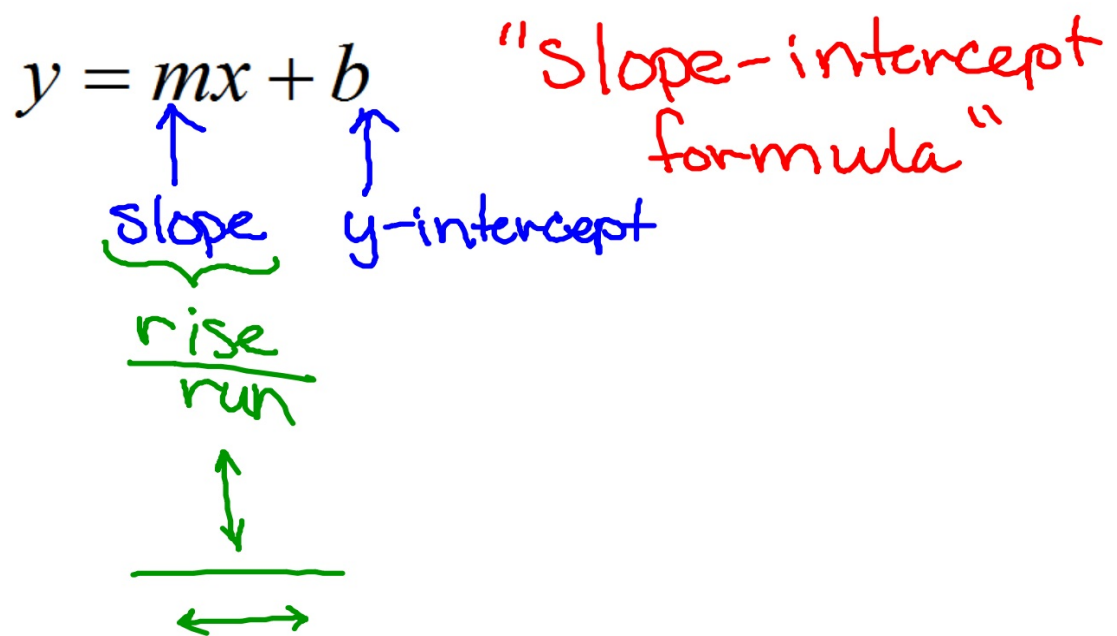 y = mx + b
"Slope-intercept
formula"
slope
y-intercept
rise
run